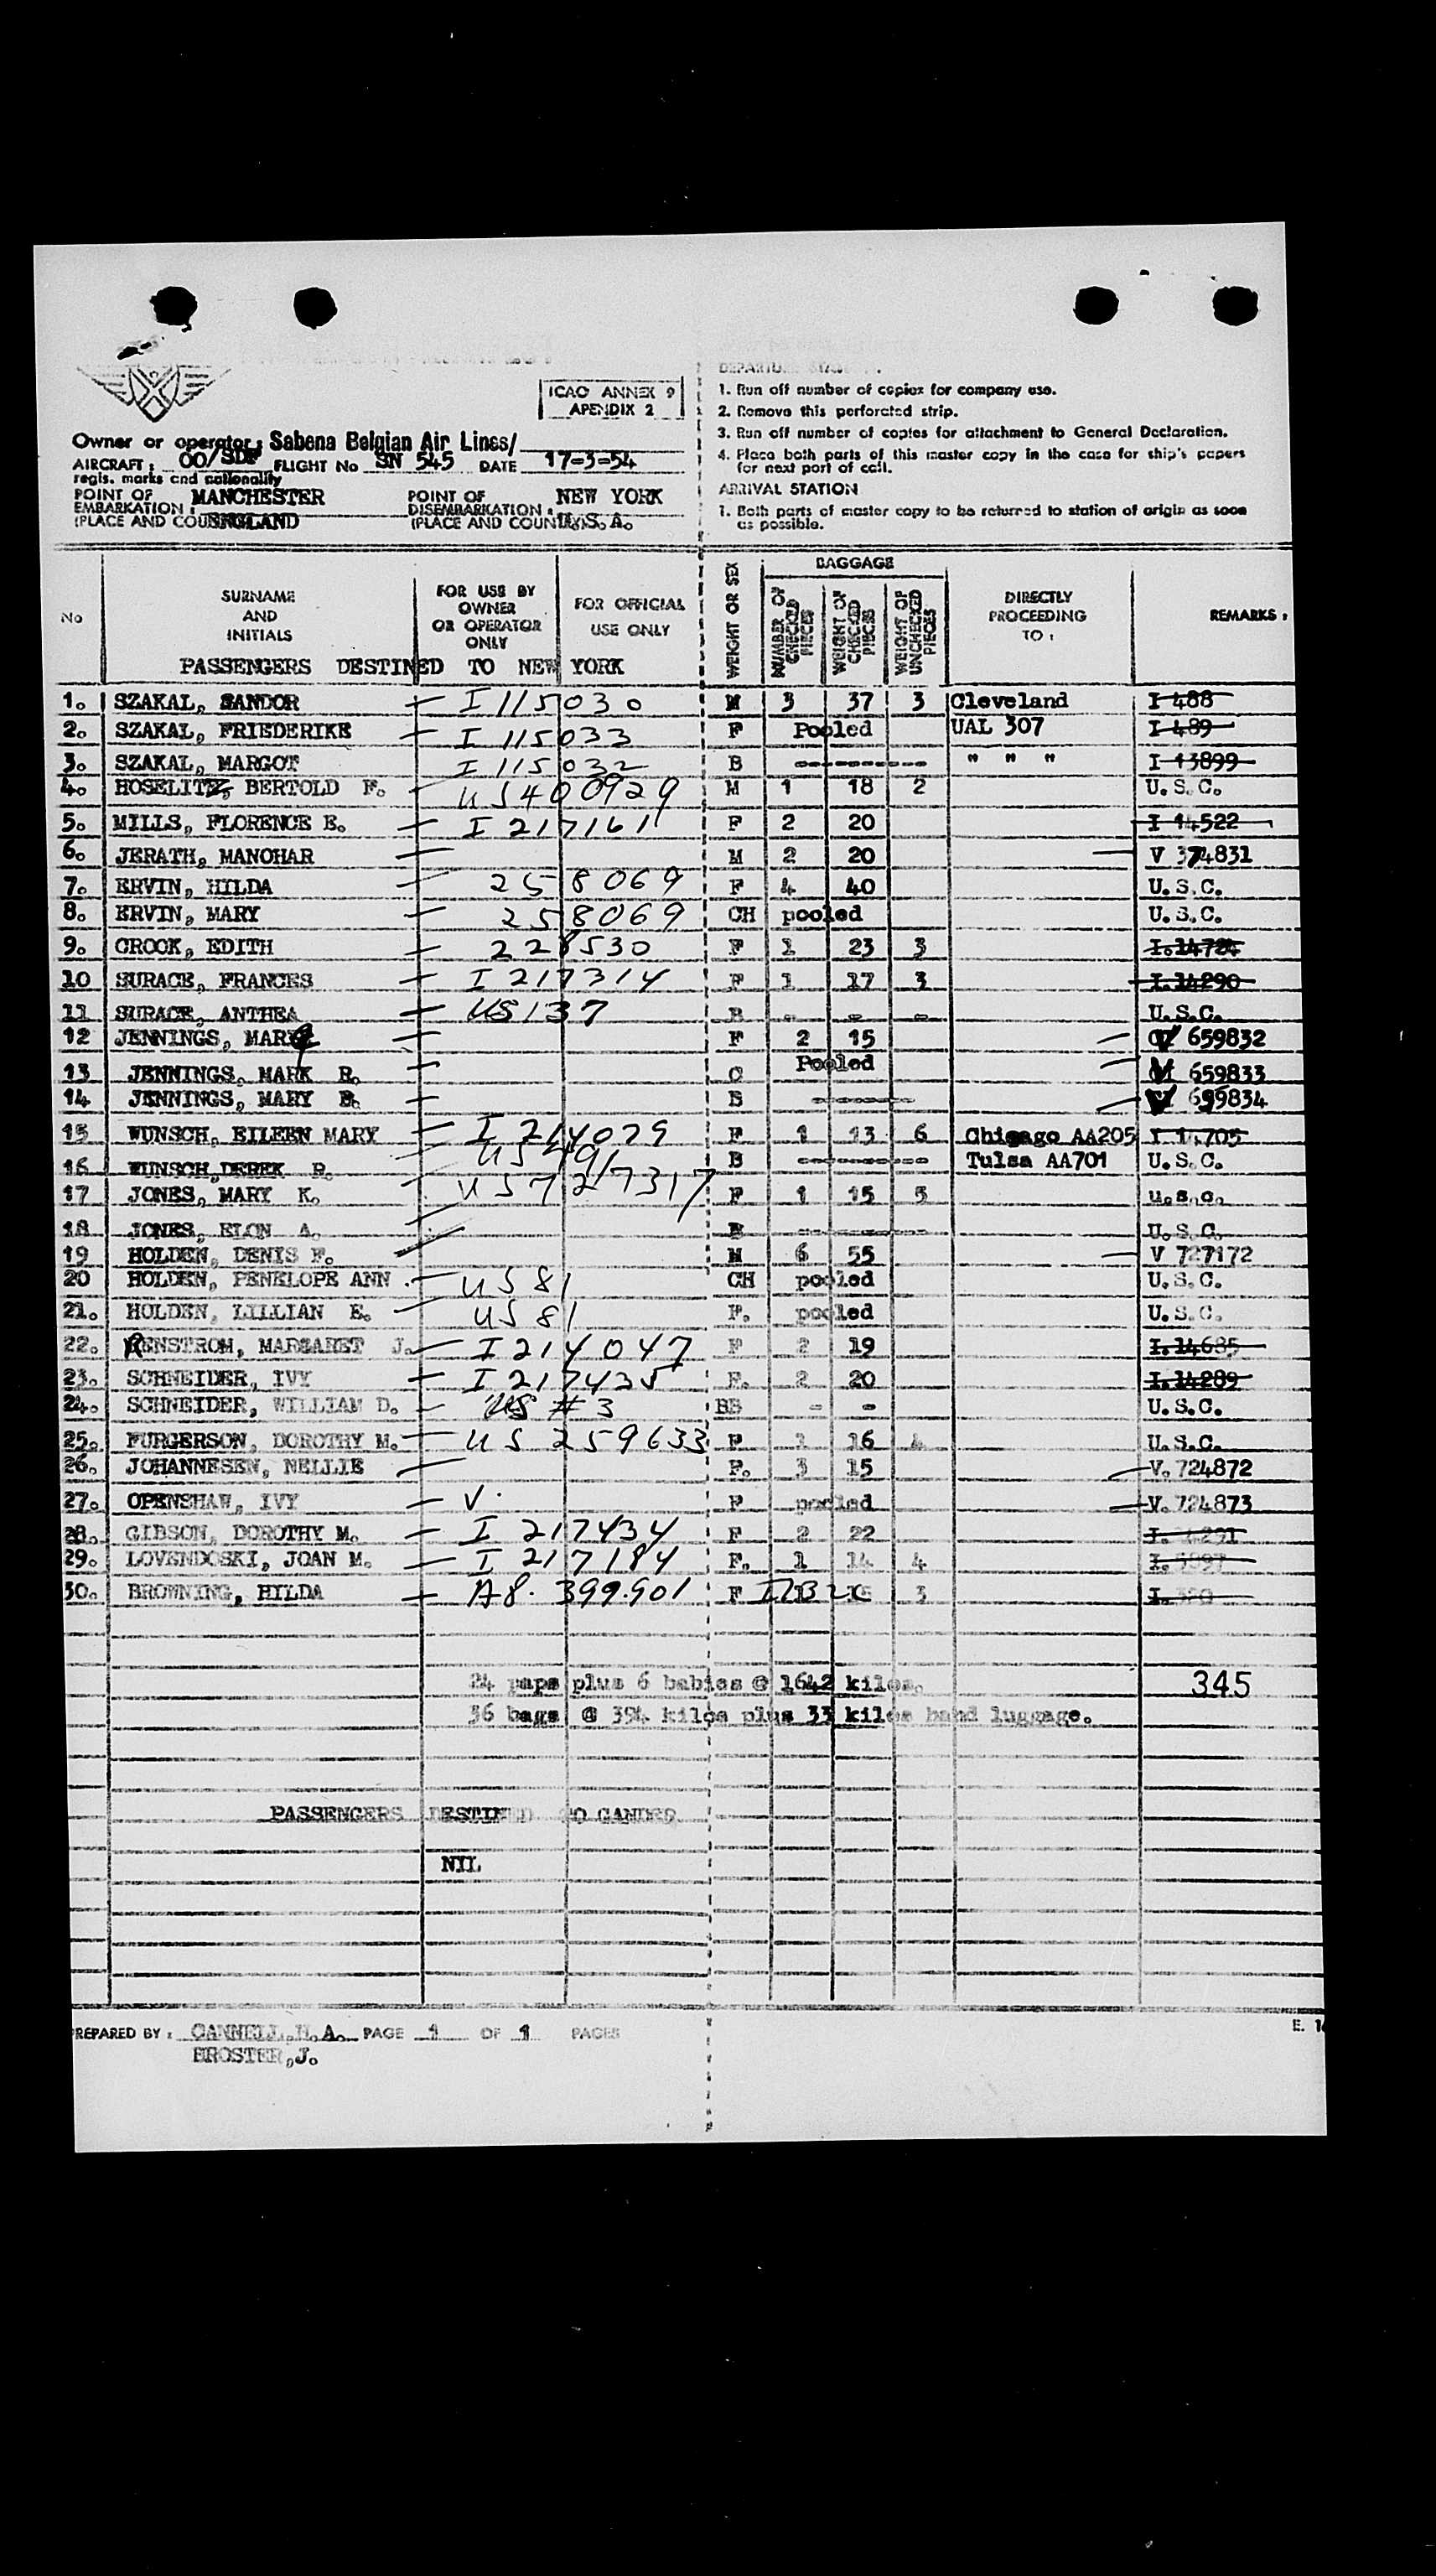 ICAO ANNEX 9
APENDIX 2
1. Run off number of copies for company use.
2. Remove this perforated strip.
3. Run off number of copies for attachment to General Declaration.
4. Place both parts of this master copy in the case for ship's papers
for next port of call.
ARRIVAL STATION
1. Both parts of master copy to be returned to station of origin as soon
as possible.
Owner or operator: Sabena Belgian Air Lines/
AIRCRAFT: OO/SDF FLIGHT No SN 545 DATE 17-3-54
regis. marks and nationality
POINT OF EMBARKATION: MANCHESTER POINT OF DISEMBARKATION: NEW YORK
(PLACE AND COU ENGLAND (PLACE AND COUNT U.S.A.
No SURNAME AND INITIALS FOR USE BY OWNER OR OPERATOR ONLY FOR OFFICIAL USE ONLY WEIGHT OR SEX BAGGAGE NUMBER OF CHECKED PIECES WEIGHT OF CHECKED PIECES WEIGHT OF UNCHECKED PIECES DIRECTLY PROCEEDING TO: REMARKS:
PASSENGERS DESTINED TO NEW YORK
1. SZAKAL, SANDOR I 115030 M 3 37 3 Cleveland I 488
2. SZAKAL, FRIEDERIKE I 115033 F Pooled UAL 307 I 489
3. SZAKAL, MARGOT I 115032 B ---------- " " " I 13899
4. HOSELITZ, BERTOLD F. US400929 M 1 18 2 U.S.C.
5. MILLS, FLORENCE E. I 217161 F 2 20 I 14522
6. JERATH, MANOHAR M 2 20 V 374831
7. ERVIN, HILDA 258069 F 4 40 U.S.C.
8. ERVIN, MARY 258069 CH pooled U.S.C.
9. CROOK, EDITH 228530 F 1 23 3 I.14724
10 SURACE, FRANCES I 217314 F 1 17 3 I.14290
11 SURACE, ANTHEA US137 B - - - U.S.C.
12 JENNINGS, MARY F 2 15 V 659832
13 JENNINGS, MARK R. C Pooled 659833
14 JENNINGS, MARY B. B ---------- V 659834
15 WUNSCH, EILEEN MARY I 214079 F 1 13 6 Chicago AA205 I 14705
16 WUNSCH, DEREK R. US 491 B ---------- Tulsa AA701 U.S.C.
17 JONES, MARY K. US7217317 F 1 15 5 U.S.C.
18 JONES, ELON A. B ---------- U.S.C.
19 HOLDEN, DENIS F. M 6 55 V 727172
20 HOLDEN, PENELOPE ANN US 81 CH pooled U.S.C.
21. HOLDEN, LILLIAN E. US 81 F. pooled U.S.C.
22. RENSTROM, MARGARET J. I 214047 F 2 19 I.14685
23. SCHNEIDER, IVY I 217435 F. 2 20 I.14289
24. SCHNEIDER, WILLIAM D. US #3 BB - - U.S.C.
25. FURGERSON, DOROTHY M. US 259633 F 1 16 4 U.S.C.
26. JOHANNESEN, NELLIE F. 3 15 V. 724872
27. OPENSHAW, IVY V. F pooled V. 724873
28. GIBSON, DOROTHY M. I 217434 F 2 22
29. LOVENDOSKI, JOAN M. I 217184 F. 1 14 4
30. BROWNING, HILDA A8. 399.901 F 3
24 paps plus 6 babies @ 1642 kilos. 345
36 bags @ 394 kilos plus 33 kilos hand luggage.
PASSENGERS DESTINED TO GANDER
NIL
PREPARED BY: CANNELL, H.A. PAGE 1 OF 1 PAGES
BROSTER, J.